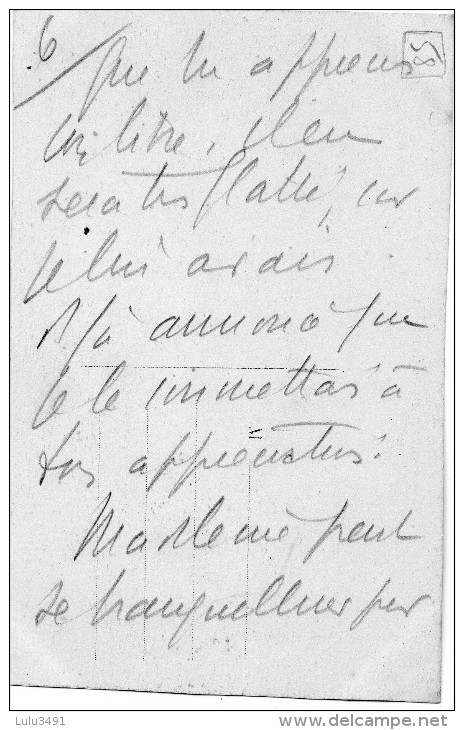 6
que tu apprécies
son livre, il en
sera très flatté, car
je lui avais
déjà annoncé que
je le soumettais à
ton appréciation.
Madeleine peut
se tranquilliser sur
Lulu3491
delcampe.net